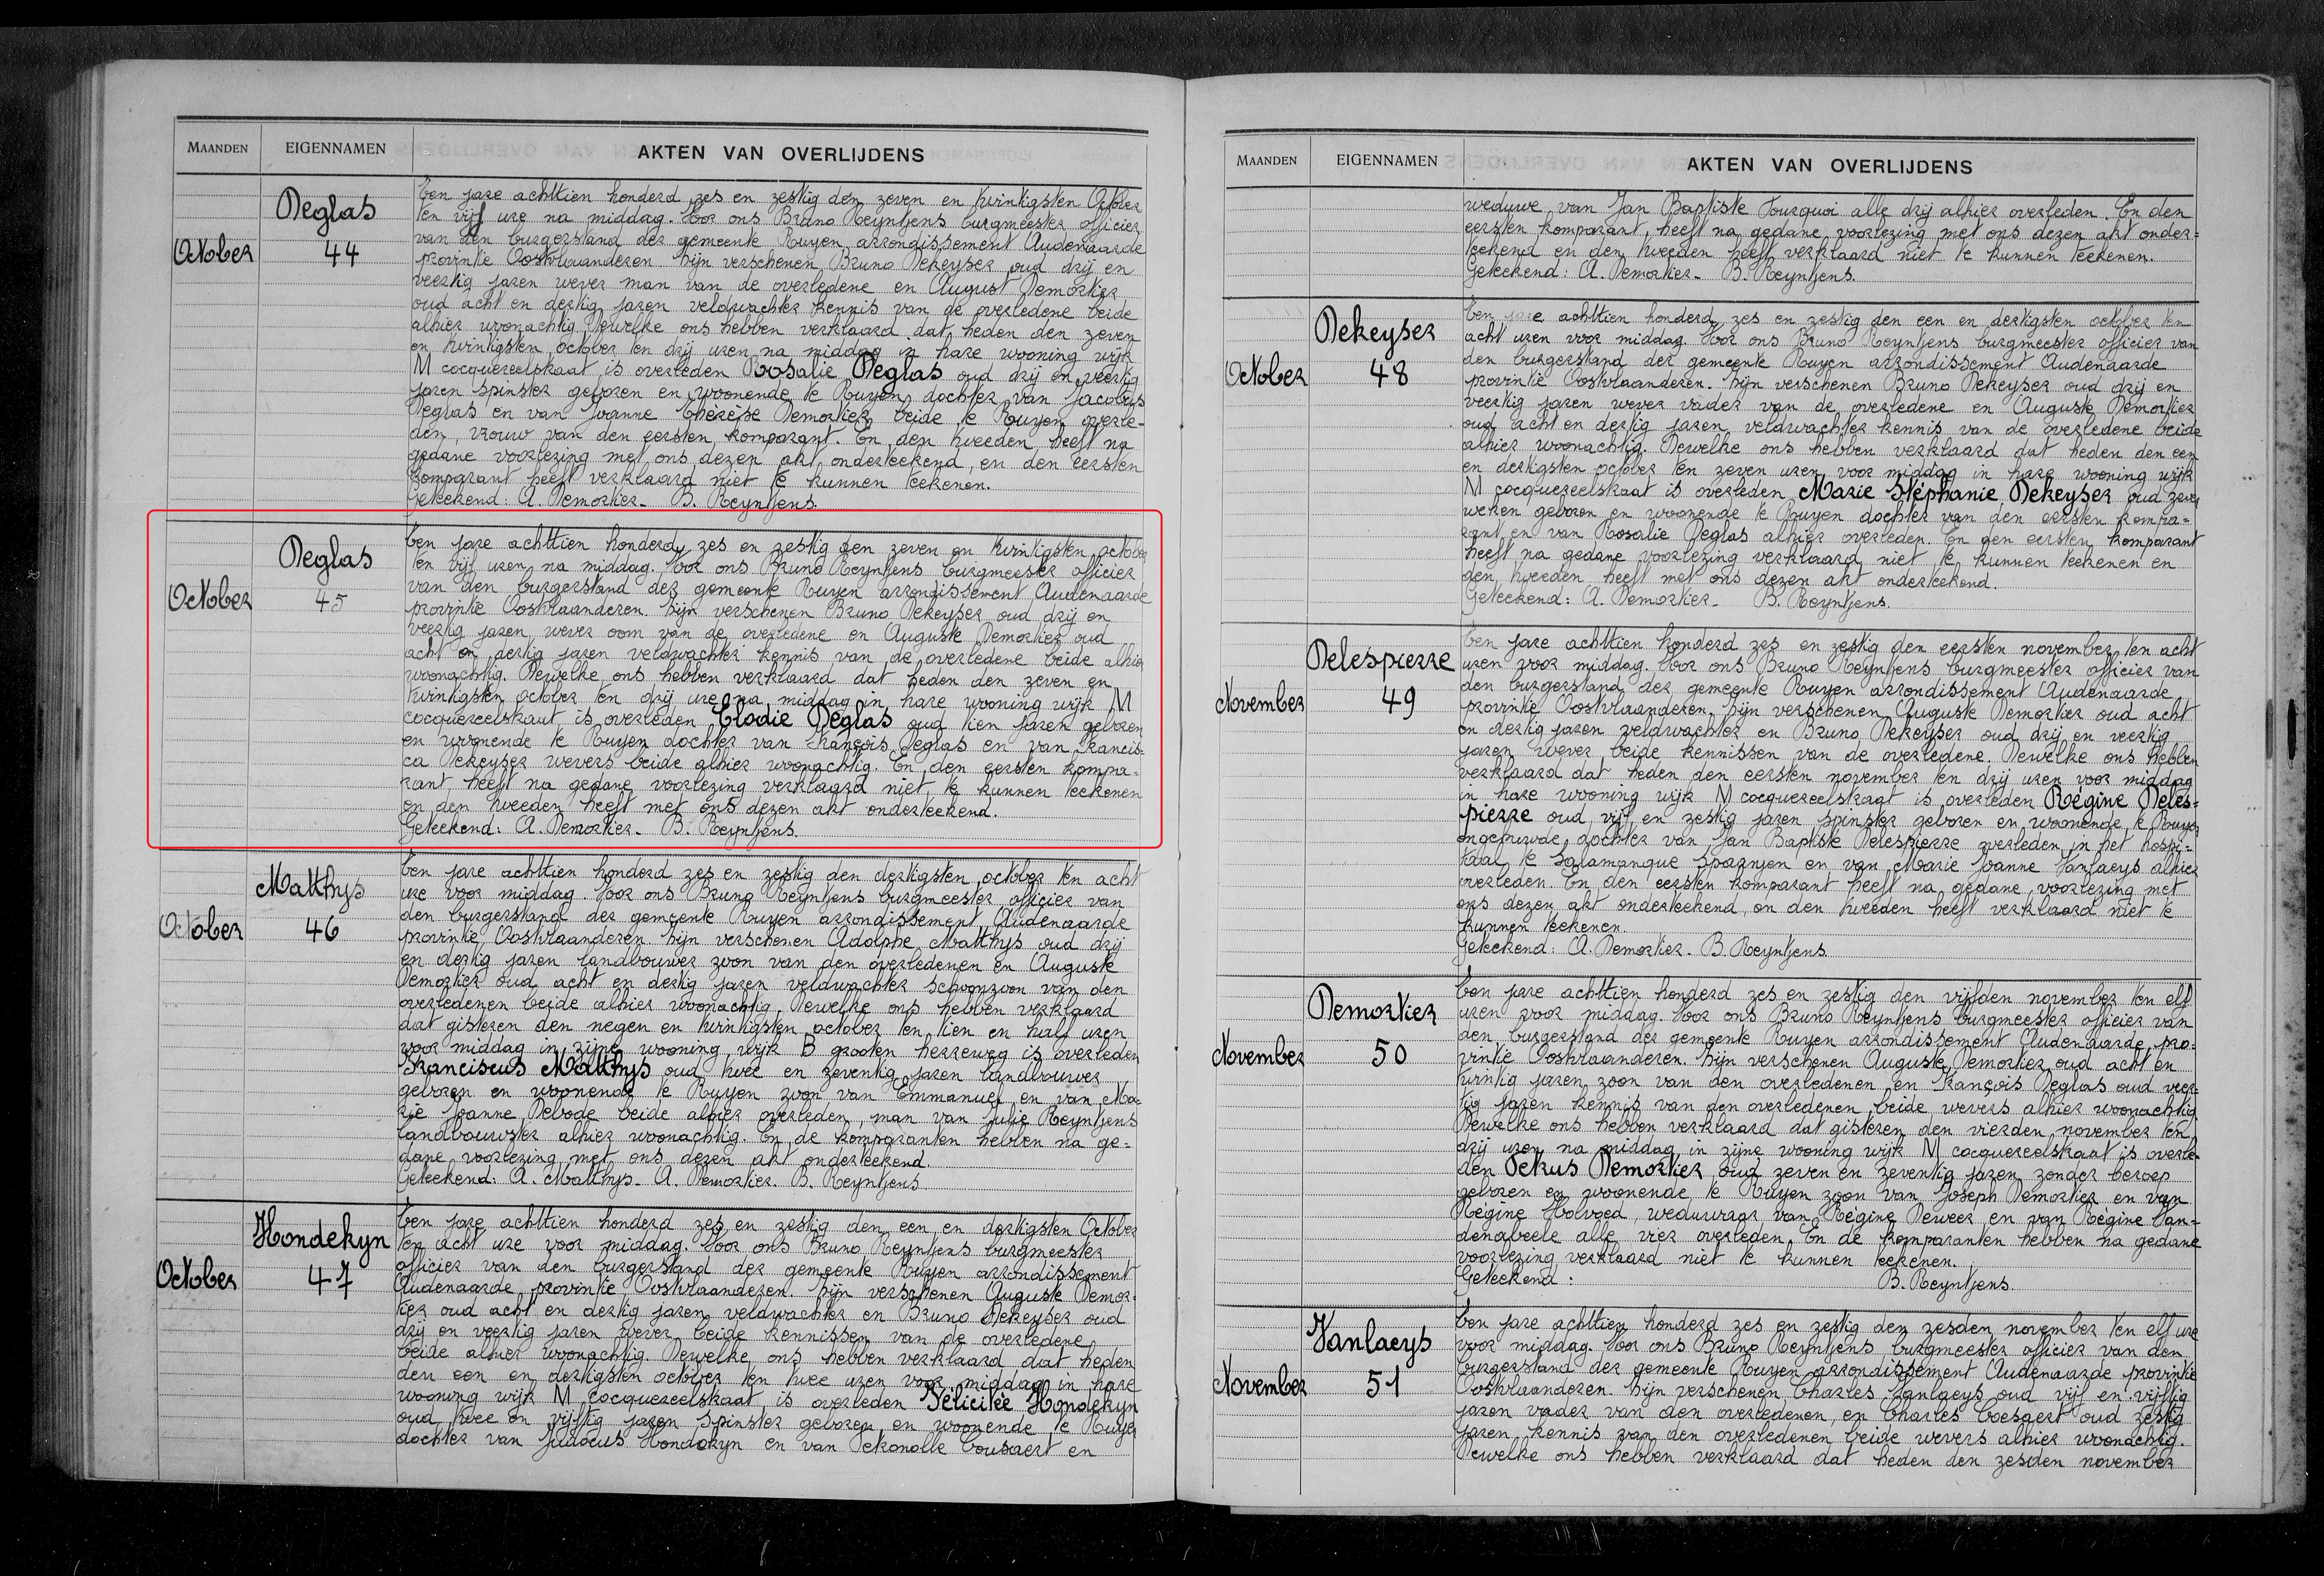 MAANDEN EIGENNAMEN AKTEN VAN OVERLIJDENS
October
Deglas
44
Ten jare achttien honderd zes en zestig den zeven en twintigsten October
ten vijf ure na middag. Voor ons Bruno Reyntjens burgmeester officier
van den burgerstand der gemeente Ruyen arrondissement Audenaarde
provintie Oostvlaanderen. Zijn verschenen Bruno Dekeyser oud drij en
veertig jaren wever man van de overledene en August Demortier
oud acht en dertig jaren veldwachter kennis van de overledene beide
alhier woonachtig. Dewelke ons hebben verklaard dat heden den zeven
en twintigsten october ten drij uren na middag in hare wooning wijk
M cocquereelstraat is overleden Rosalie Deglas oud drij en veertig
jaren spinster geboren en woonende te Ruyen dochter van Jacobus
Deglas en van Joanne Thérèse Demortier beide te Ruyen overle-
den, vrouw van den eersten komparant. En den tweeden heeft na
gedane voorlezing met ons dezen akt onderteekend, en den eersten
komparant heeft verklaard niet te kunnen teekenen.
Geteekend: A. Demortier. B. Reyntjens.
October
Deglas
45
Ten jare achttien honderd zes en zestig den zeven en twintigsten october
ten vijf uren na middag. Voor ons Bruno Reyntjens burgmeester officier
van den burgerstand der gemeente Ruyen arrondissement Audenaarde
provintie Oostvlaanderen. Zijn verschenen Bruno Dekeyser oud drij en
veertig jaren wever oom van de overledene en Auguste Demortier oud
acht en dertig jaren veldwachter kennis van de overledene beide alhier
woonachtig. Dewelke ons hebben verklaard dat heden den zeven en
twintigsten october ten drij ure na middag in hare wooning wijk M
cocquereelstraat is overleden Elodie Deglas oud tien jaren geboren
en woonende te Ruyen dochter van François Deglas en van Francis-
ca Dekeyser wevers beide alhier woonachtig. En den eersten kompa-
rant heeft na gedane voorlezing verklaard niet te kunnen teekenen
en den tweeden heeft met ons dezen akt onderteekend.
Geteekend: A. Demortier. B. Reyntjens.
October
Matthys
46
Ten jare achttien honderd zes en zestig den dertigsten october ten acht
ure voor middag. Voor ons Bruno Reyntjens burgmeester officier van
den burgerstand der gemeente Ruyen arrondissement Audenaarde
provintie Oostvlaanderen. Zijn verschenen Adolphe Matthys oud drij
en dertig jaren landbouwer zoon van den overledenen en Auguste
Demortier oud acht en dertig jaren veldwachter schoonzoon van den
overledenen beide alhier woonachtig. Dewelke ons hebben verklaard
dat gisteren den negen en twintigsten october ten tien en half uren
voor middag in zijne wooning wijk B grooten herreweg is overleden
Franciscus Matthys oud twee en zeventig jaren landbouwer
geboren en woonende te Ruyen zoon van Emmanuel en van Ma-
rie Joanne Debode beide alhier overleden, man van Julie Reyntjens
landbouwster alhier woonachtig. En de komparanten hebben na ge-
dane voorlezing met ons dezen akt onderteekend.
Geteekend: A. Matthys. A. Demortier. B. Reyntjens
October
Hondekyn
47
Ten jare achttien honderd zes en zestig den een en dertigsten October
ten acht ure voor middag. Voor ons Bruno Reyntjens burgmeester
officier van den burgerstand der gemeente Ruyen arrondissement
Audenaarde provintie Oostvlaanderen. Zijn verschenen Auguste Demor-
tier oud acht en dertig jaren veldwachter en Bruno Dekeyser oud
drij en veertig jaren wever beide kennissen van de overledene
beide alhier woonachtig. Dewelke ons hebben verklaard dat heden
den een en dertigsten october ten twee uren voor middag in hare
wooning wijk M cocquereelstraat is overleden Félicitée Hondekyn
oud twee en vijftig jaren spinster geboren en woonende te Ruyen
dochter van Judocus Hondekyn en van Petronolle Cousaert en
MAANDEN EIGENNAMEN AKTEN VAN OVERLIJDENS
weduwe van Jan Baptiste Fourquoi alle drij alhier overleden. En den
eersten komparant, heeft na gedane voorlezing met ons dezen akt onder-
teekend en den tweeden heeft verklaard niet te kunnen teekenen.
Geteekend: A. Demortier. B. Reyntjens.
October
Dekeyser
48
Ten jare achttien honderd zes en zestig den een en dertigsten october ten
acht uren voor middag. Voor ons Bruno Reyntjens burgmeester officier van
den burgerstand der gemeente Ruyen arrondissement Audenaarde
provintie Oostvlaanderen. Zijn verschenen Bruno Dekeyser oud drij en
veertig jaren wever vader van de overledene en Auguste Demortier
oud acht en dertig jaren veldwachter kennis van de overledene beide
alhier woonachtig. Dewelke ons hebben verklaard dat heden den een
en dertigsten october ten zeven uren voor middag in hare wooning wijk
M cocquereelstraat is overleden Marie Stéphanie Dekeyser oud zeven
weken geboren en woonende te Ruyen dochter van den eersten kompa-
rant en van Rosalie Deglas alhier overleden. En den eersten komparant
heeft na gedane voorlezing verklaard niet te kunnen teekenen en
den tweeden heeft met ons dezen akt onderteekend.
Geteekend: A. Demortier. B. Reyntjens.
November
Delespierre
49
Ten jare achttien honderd zes en zestig den eersten november ten acht
uren voor middag. Voor ons Bruno Reyntjens burgmeester officier van
den burgerstand der gemeente Ruyen arrondissement Audenaarde
provintie Oostvlaanderen. Zijn verschenen Auguste Demortier oud acht
en dertig jaren veldwachter en Bruno Dekeyser oud drij en veertig
jaren wever beide kennissen van de overledene. Dewelke ons hebben
verklaard dat heden den eersten november ten drij uren voor middag
in hare wooning wijk M cocquereelstraat is overleden Régine Deles-
pierre oud vijf en zestig jaren spinster geboren en woonende te Ruyen
ongehuwde dochter van Jan Baptiste Delespierre overleden in het hospi-
taal te Salamanque Spaanjen en van Marie Joanne Vanlaeys alhier
overleden. En den eersten komparant heeft na gedane voorlezing met
ons dezen akt onderteekend, en den tweeden heeft verklaard niet te
kunnen teekenen.
Geteekend: A. Demortier. B. Reyntjens.
November
Demortier
50
Ten jare achttien honderd zes en zestig den vijfden november ten elf
uren voor middag. Voor ons Bruno Reyntjens burgmeester officier van
den burgerstand der gemeente Ruyen arrondissement Audenaarde pro-
vintie Oostvlaanderen. Zijn verschenen Auguste Demortier oud acht en
twintig jaren zoon van den overledenen en François Deglas oud veer-
tig jaren kennis van den overledenen beide wevers alhier woonachtig
Dewelke ons hebben verklaard dat gisteren den vierden november ten
drij uren na middag in zijne wooning wijk M cocquereelstraat is overle-
den Petrus Demortier oud zeven en zeventig jaren zonder beroep
geboren en woonende te Ruyen zoon van Joseph Demortier en van
Régine Holvoed, weduwaar van Régine Deweer en van Régine Van-
denabeele alle vier overleden. En de komparanten hebben na gedane
voorlezing verklaard niet te kunnen teekenen.
Geteekend: B. Reyntjens.
November
Vanlaeys
51
Ten jare achttien honderd zes en zestig den zesden november ten elf ure
voor middag. Voor ons Bruno Reyntjens burgmeester officier van den
burgerstand der gemeente Ruyen arrondissement Audenaarde provintie
Oostvlaanderen. Zijn verschenen Charles Vanlaeys oud vijf en vijftig
jaren vader van den overledenen, en Charles Coesaert oud zestig
jaren kennis van den overledenen beide wevers alhier woonachtig.
Dewelke ons hebben verklaard dat heden den zesden november